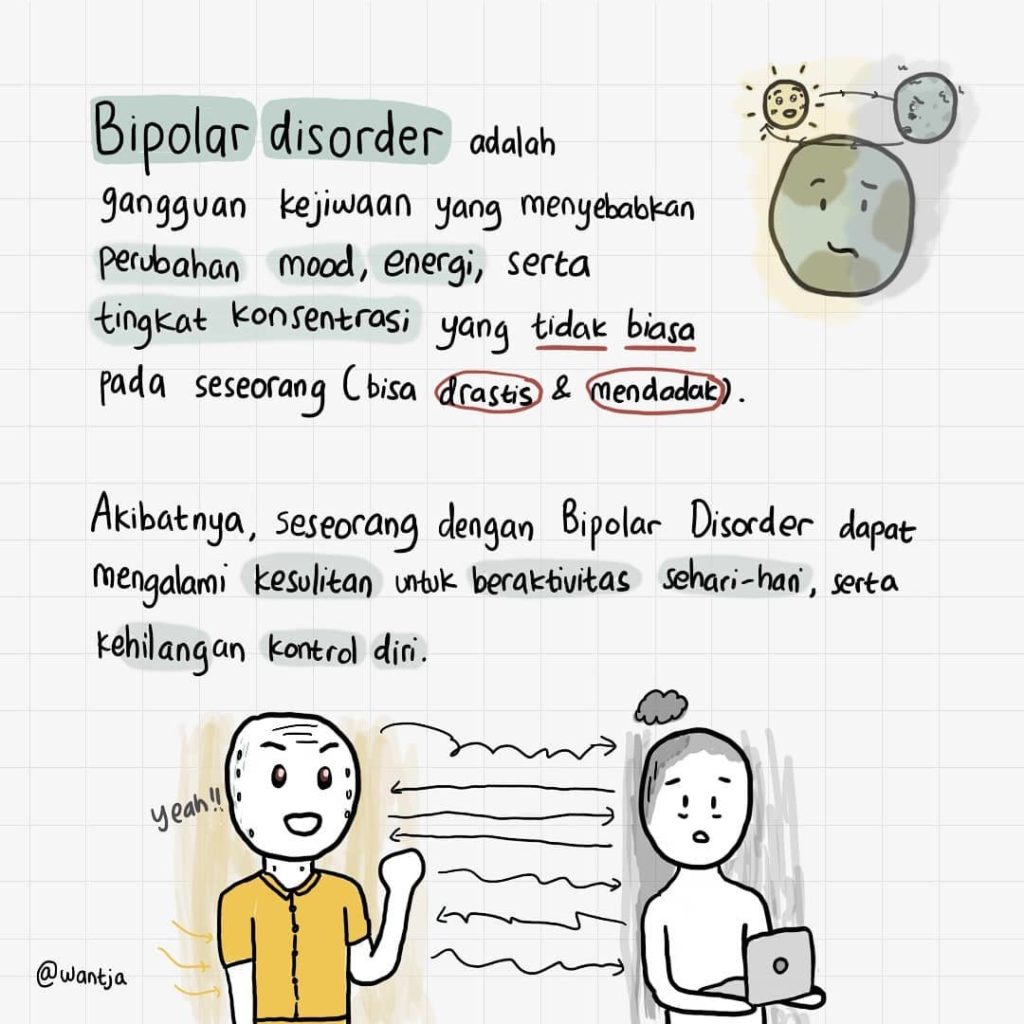 Bipolar disorder adalah
gangguan kejiwaan yang menyebabkan
perubahan mood, energi, serta
tingkat konsentrasi yang tidak biasa
pada seseorang (bisa drastis & mendadak).
Akibatnya, seseorang dengan Bipolar Disorder dapat
mengalami kesulitan untuk beraktivitas sehari-hari, serta
kehilangan kontrol diri.
yeah!!
@wantja